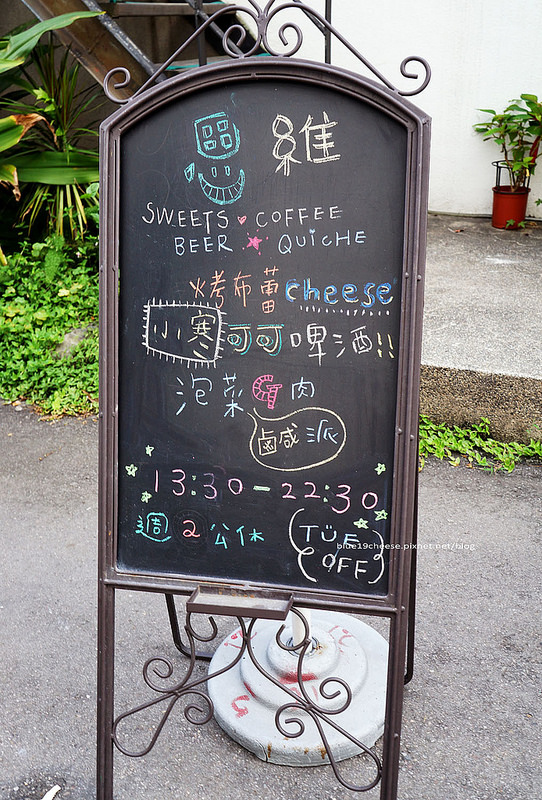 思維
SWEETS COFFEE
BEER QUiCHE
烤布蕾 cheese
小寒 可可 啤酒!!
泡菜 牛肉
鹹派
13:30-22:30
週2公休
TÜE
OFF
blue19cheese.pixnet.net/blog